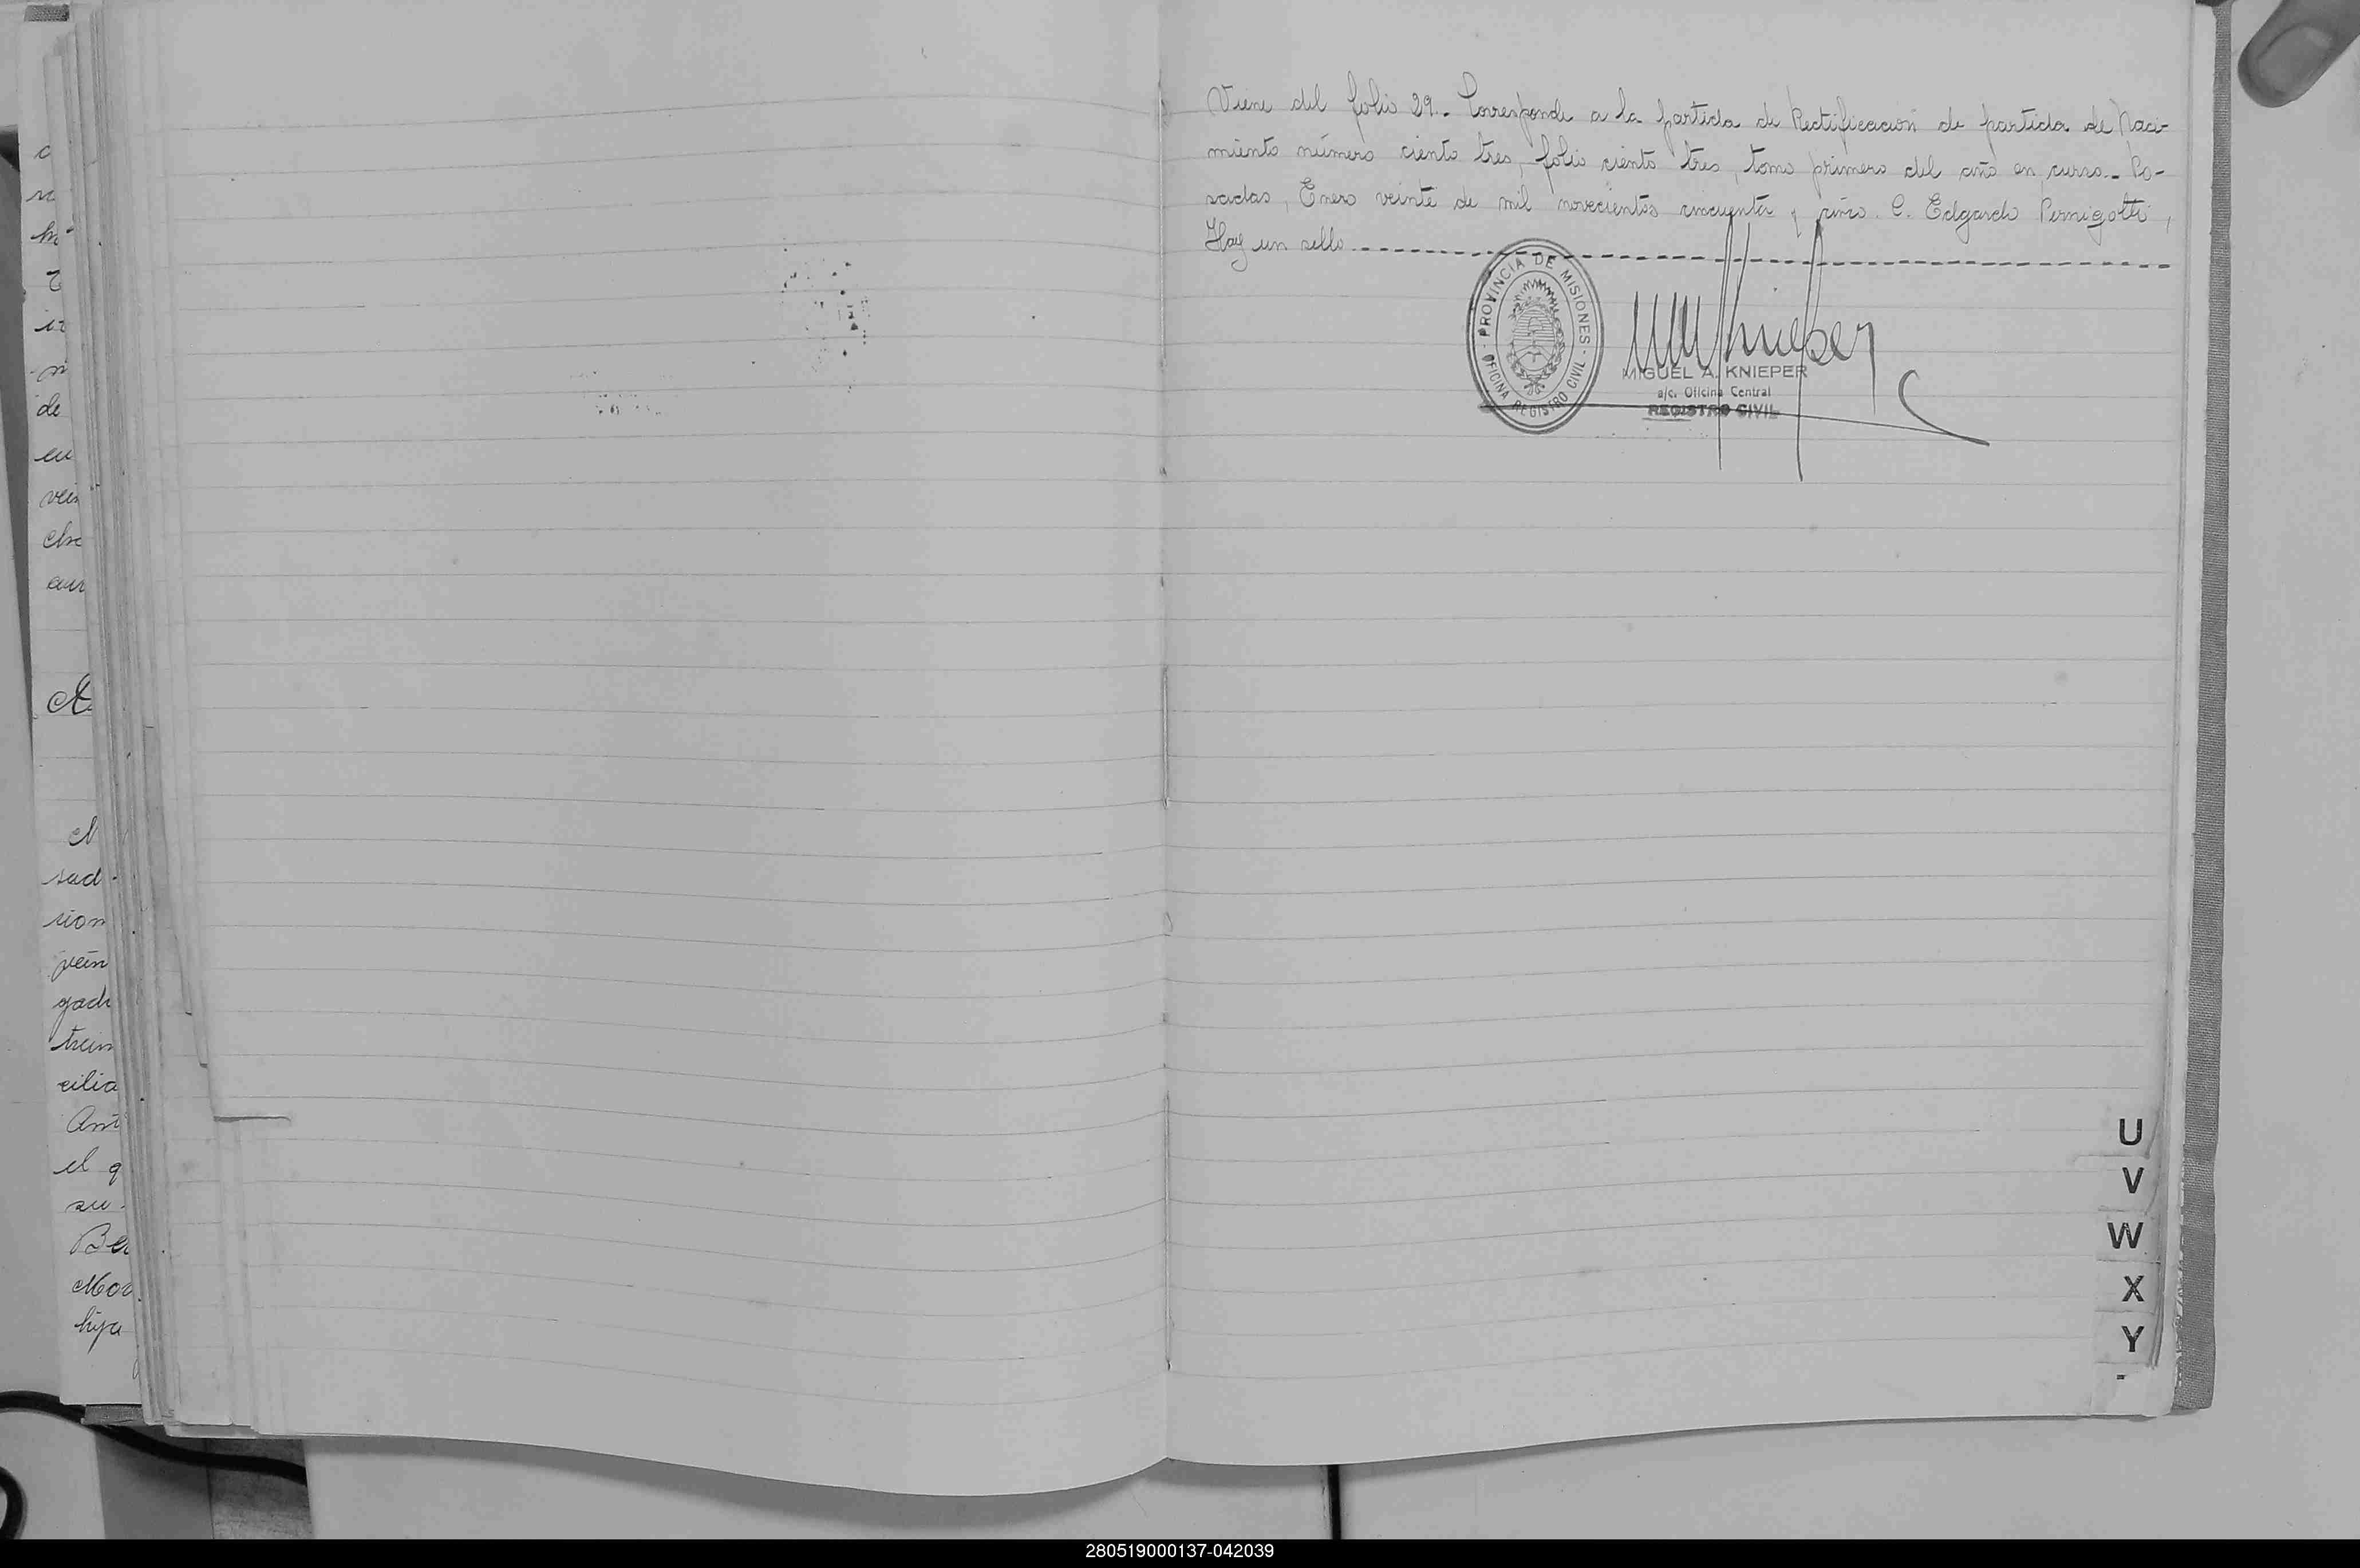 Viene del folio 29.- Corresponde a la partida de Rectificación de partida de Naci-
miento número ciento tres, folio ciento tres, tomo primero del año en curso.- Po-
sadas, Enero veinte de mil novecientos cincuenta y cinco. C. Edgardo Pernigotti,
Hay un sello
PROVINCIA DE MISIONES
OFICINA REGISTRO CIVIL
MIGUEL A. KNIEPER
a/c. Oficina Central
REGISTRO CIVIL
de
su
Bea
hija
el q
cilia
U
V
W
X
Y
280519000137-042039